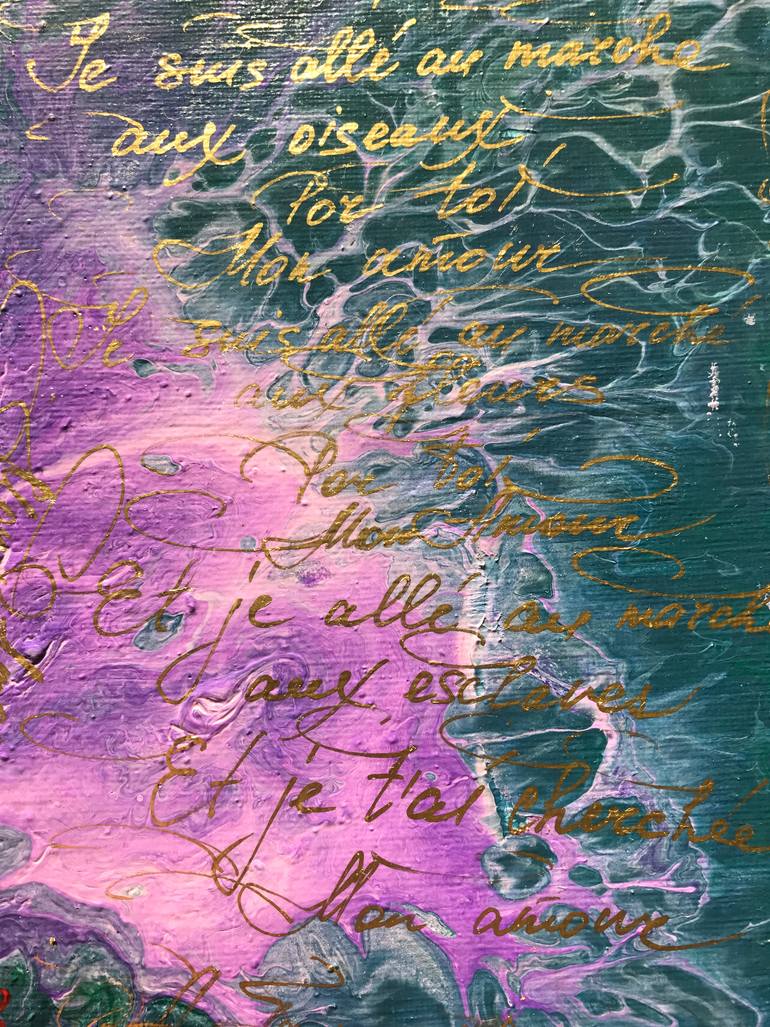 Je suis allé au marche
aux oiseaux
Por toi
Mon amour
Je suis allé au marché
aux fleurs
Por toi
Mon Amour
Et je allé au march
aux esclaves
Et je t'ai cherchée
Mon amour